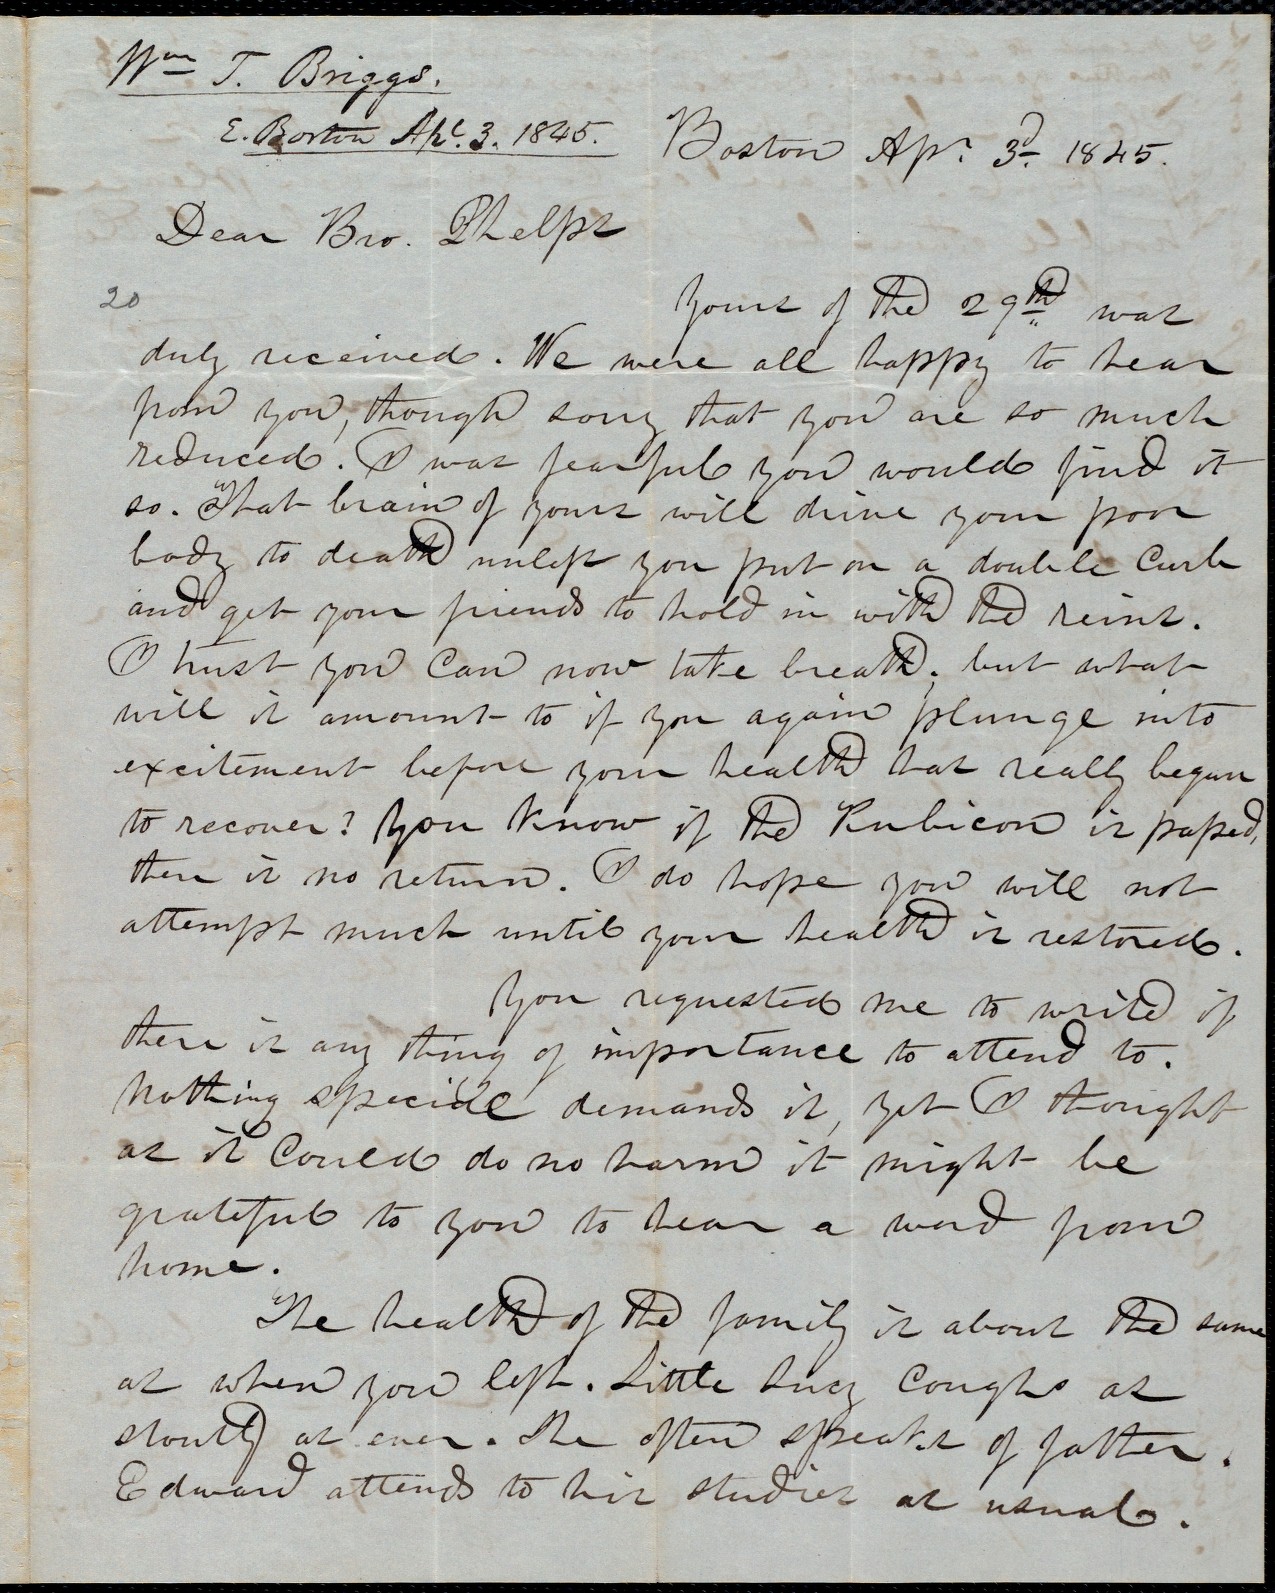 Wm T. Briggs.
E. Boston Apl. 3. 1845.
Boston Apr. 3d. 1845.
Dear Bro. Phelps
20
Yours of the 29th was
duly received. We were all happy to hear
from you, though sorry that you are so much
reduced. I was fearful you would find it
so. That brain of yours will drive your poor
body to death unless you put on a double Curb
and get your friends to hold in with the reins.
I trust you can now take breath; but what
will it amount to if you again plunge into
excitement before your health has really begun
to recover? You know if the Rubicon is passed,
there is no return. I do hope you will not
attempt much until your health is restored.
You requested me to write if
there is any thing of importance to attend to.
Nothing special demands it, yet I thought
as it could do no harm it might be
grateful to you to hear a word from
home.
The health of the family is about the same
as when you left. Little Lucy coughs as
stoutly as ever. She often speaks of father.
Edward attends to his studies as usual.